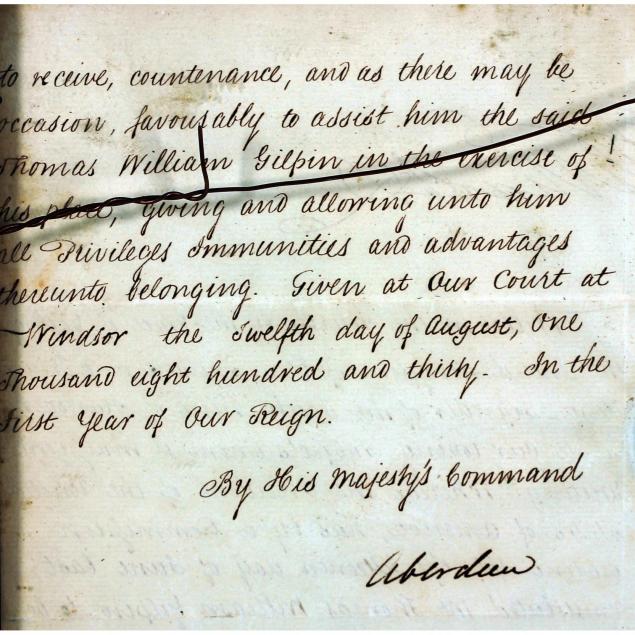 to receive, countenance, and as there may be
occasion, favourably to assist him the said
Thomas William Gilpin in the exercise of
his place, giving and allowing unto him
all Privileges Immunities and advantages
thereunto belonging. Given at Our Court at
Windsor the Twelfth day of August, One
Thousand eight hundred and thirty. In the
First Year of Our Reign.
By His Majesty's Command
Aberdeen